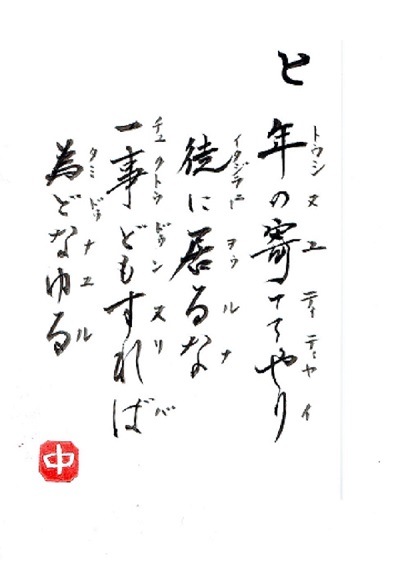 と
トゥシヌユティティヤイ
年の寄ててやり
イタジラニヲゥルナ
徒に居るな
チュクトゥドゥンスリバ
一事どもすれば
タミドゥナユル
為どなゆる
中